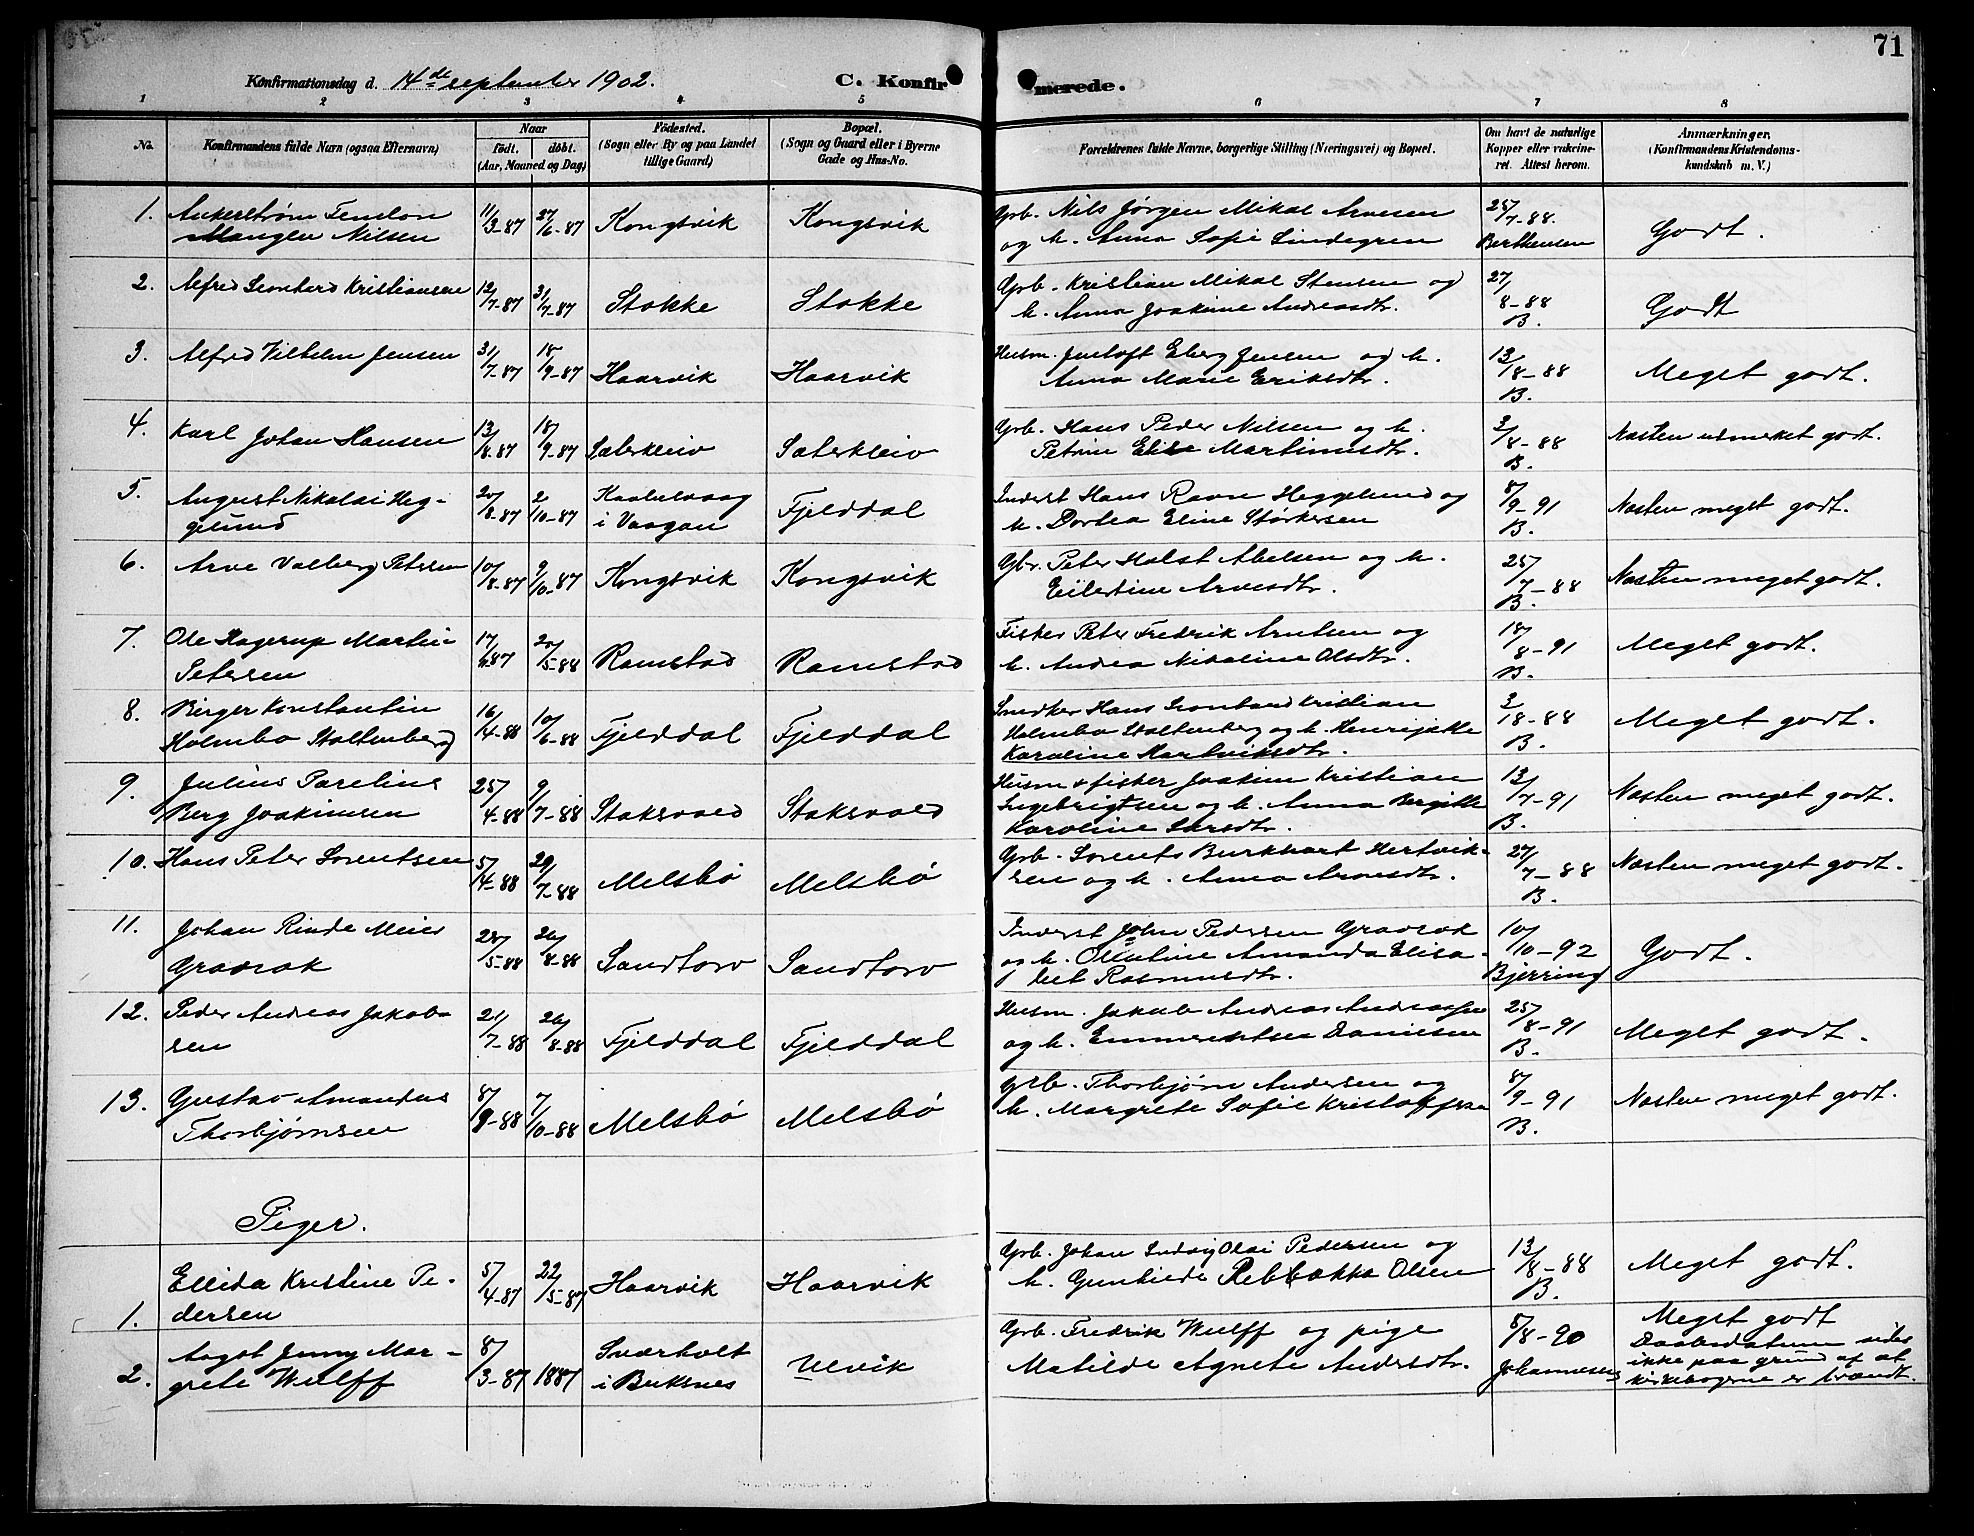 71
Konfirmationsdag d. 14de september 1902.
C. Konfirmerede.
1 2 3 4 5 6 7 8
No.
Konfirmandens fulde Navn (ogsaa Efternavn)
Naar
født. døbt.
(Aar, Maaned og Dag)
Fødested.
(Sogn eller By og paa Landet
tillige Gaard)
Bopæl.
(Sogn og Gaard eller i Byerne
Gade og Hus-No.
Forældrenes fulde Navne, borgerlige Stilling (Næringsvei) og Bopæl.
Om havt de naturlige
Kopper eller vakcine-
ret. Attest herom.
Anmærkninger.
(Konfirmandens Kristendoms-
kundskab m. V.)
1. Ankerstrøm Nilsen 11/3-87 27/6-87 Kongsvik Kongsvik
Grb. Nils Jørgen Mikal Arnesen
og h. Anna Sofie Lindegren
25/7-88. Berthensen
Godt.
2. Alfred Leonhard Kristiansen 12/7-87 31/7-87 Stokke Stokke
Grb. Kristian Mikal Stensen og
h. Anna Joakime Andreasdtr.
27/8-88 B.
Godt
3. Alfred Vilhelm Jensen 31/7-87 18/9-87 Haarvik Haarvik
Husm. Jentoft Eberg Jensen og h.
Anna Marie Eriksdtr.
13/8-88 B.
Meget godt.
4. Karl Johan Hansen 13/8-87 18/9-87 Sæterkleiv Sæterkleiv
Grb. Hans Peder Nilsen og h.
Petrine Elise Martinusdtr.
3/8-88 B.
Næsten udmerket godt.
5. August Nikolai Heg-
gelund 20/8-87 2/10-87 Kabelvaag
i Vaagan Fjelddal
Inderst Hans Ravn Heggelund og
h. Dortea Eline Størkersen
8/9-91 B.
Næsten meget godt.
6. Arve Valberg Petersen 10/8-87 9/10-87 Kongsvik Kongsvik
Gbr. Peter Holst Abelsen og h.
Eilertine Arnesdtr.
25/7-88 B.
Næsten meget godt.
7. Ole Hagerup Martin
Petersen 17/ 87 20/5-88 Ramstad Ramstad
Fisker Peter Fredrik Arntsen og
h. Andrea Nikoline Olsdtr.
18/8-91 B.
Meget godt.
8. Birger Konstantin
Holmbo Stoltenberg 16/4-88 10/6-88 Fjelddal Fjelddal
Snedker Hans Leonhard Kristian
Holmbo Stoltenberg og h. Henrijakke
Karoline Hartviksdtr.
3/8-88 B.
Meget godt.
9. Julius Parelius
Berg Joakimsen 25/4-88 9/7-88 Staksvold Staksvold
Husm & fisker Joakim Kristian
Ingebrigtsen og h. Anna Bergitte
Karoline Larsdtr.
13/7-91 B.
Næsten meget godt.
10. Hans Peter Lorentsen 5/4-88 29/7-88 Melsbø Melsbø
Grb. Lorents Burkhart Hertvik-
sen og h. Anna Arnesdtr.
27/7-88 B.
Næsten meget godt.
11. Johan Rinde Meier
Gravrok 28/5-88 26/8-88 Sandtorv Sandtorv
Inderst John Pedersen Gravrok
og h. Oluline Amanda Elisa-
bet Rasmusdtr.
10/10-92 Bjerring
Godt.
12. Peder Andreas Jakob-
sen 21/7-88 26/8-88 Fjelddal Fjelddal
Husm. Jakob Andreas Andreassen
og h. Emmerentsea Danielsen
25/8-91 B.
Meget godt.
13. Gustav Amandus
Thorbjørnsen 8/9-88 7/10-88 Melsbø Melsbø
Grb. Thorbjørn Andersen og
h. Margrete Sofie Kristoffersen
8/9-91 B.
Næsten meget godt.
Piger.
1. Ellida Kristine Pe-
dersen 5/4-87 22/5-87 Haarvik Haarvik
Grb. Johan Ludvig Olai Pedersen og
h. Gunhilde Rebbekka Olsen
13/8-88 B.
Meget godt.
2. Aagot Jenny Mar-
grete Wulff 8/3-87 1887 Sværholt
i Buksnes Ulvik
Grb. Fredrik Wulff og pige
Matilde Agnete Andersdtr.
8/8-90 Johannesen
Meget godt
Daabsdatum vides
ikke paa grund af at
kirkebøgerne er brændt.